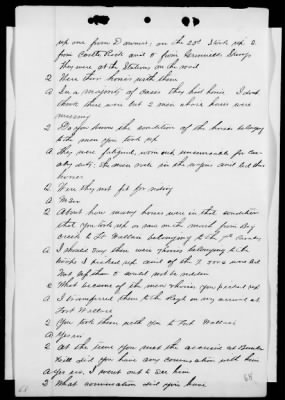 up one from Downer's, on the 23rd I took up 2
from Castle Rock and 5 from Grinnell Springs
They were at the Stations on the road
Q Were their horses with them
A In a majority of cases they had horses I dont
think there were but 2 men whose horses were
missing
Q Do you know the condition of the horses belonging
to the men you took up
A They were fatigued, worn out, unserviceable for Cav-
alry duty; the men rode in the wagon and led their
horses
Q Were they not fit for riding
A No Sir
Q About how many horses were in that condition
that you took up or saw on the march from Big
Creek to Ft Wallace belonging to the 7th Cavalry
A I should say there were 7 horses belonging to the
troops I picked up and of the 7 some were led
but of them 5 could not be ridden
Q What became of the men whom you picked up
A I transferred them to the Regt on my arrival at
Fort Wallace
Q You took them with you to Fort Wallace
A Yes sir
Q At the time you met the accused at
Hill did you have any conversation with him
A Yes sir, I went out to see him
Q What conversation did you have
68